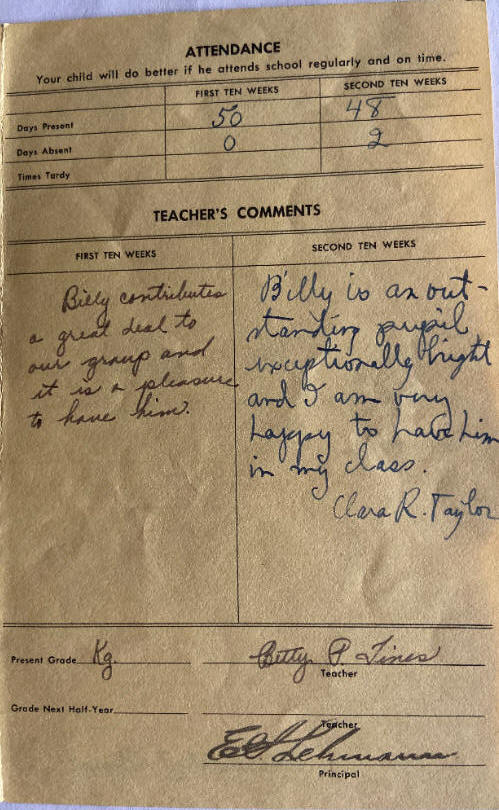 ATTENDANCE
Your child will do better if he attends school regularly and on time.
FIRST TEN WEEKS SECOND TEN WEEKS
Days Present 50 48
Days Absent 0 2
Times Tardy
TEACHER'S COMMENTS
FIRST TEN WEEKS
Billy contributes
a great deal to
our group and
it is a pleasure
to have him.
SECOND TEN WEEKS
Billy is an out-
standing pupil
exceptionally bright
and I am very
happy to have him
in my class.
Clara R. Taylor
Present Grade Kg. Betty P. Tines
Teacher
Grade Next Half-Year
Teacher
Principal